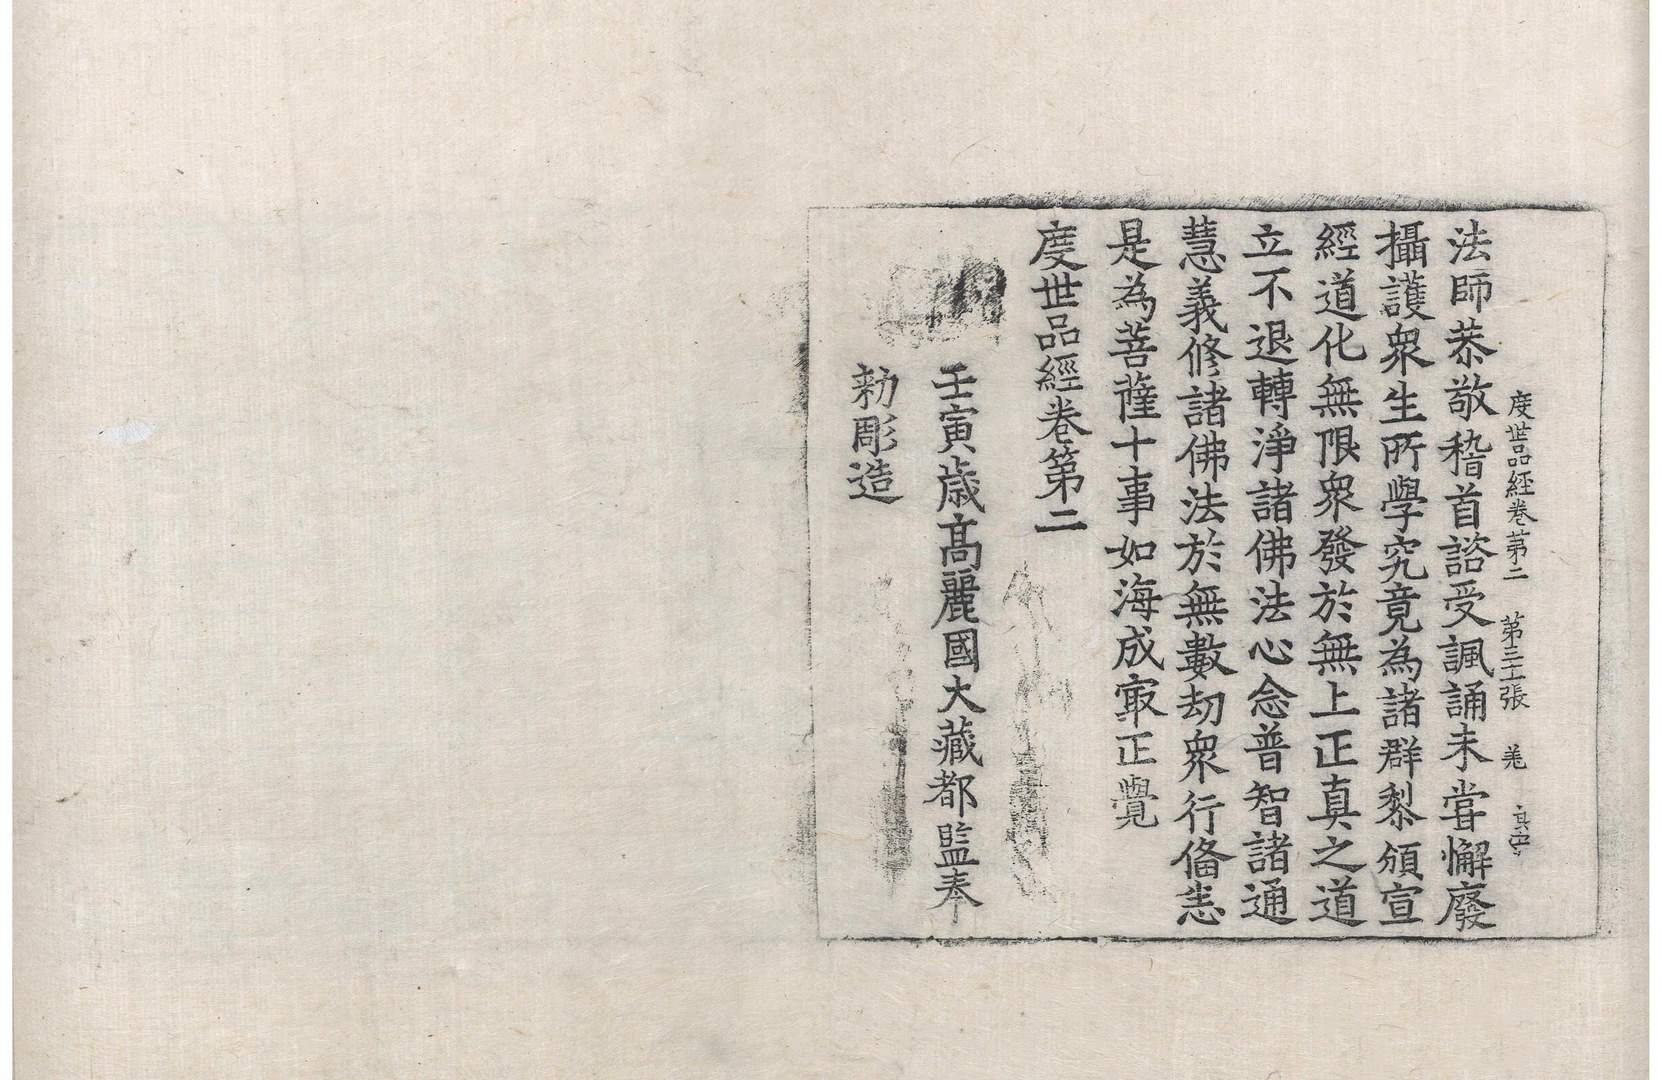 度世品經卷第二 第三十一張 羌
法師恭敬稽首諮受諷誦未甞懈廢
攝護衆生所學究竟為諸群黎頒宣
經道化無限衆發於無上正真之道
立不退轉淨諸佛法心念普智諸通
慧義修諸佛法於無數劫衆行俻悉
是為菩薩十事如海成㝡正覺
度世品經卷第二
壬寅歲高麗國大藏都監奉
勑彫造